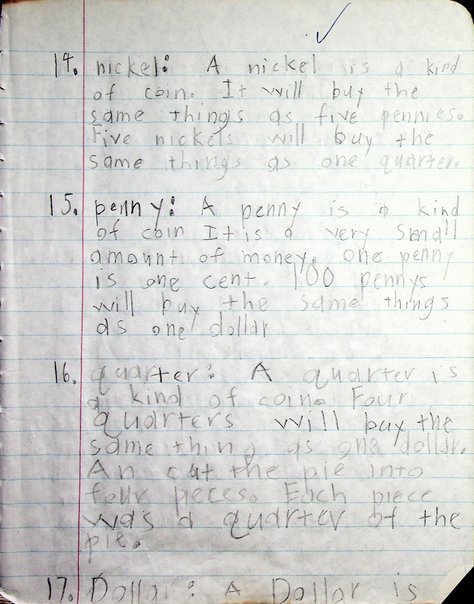 14. nickel: A nickel is a kind
of coin. It will buy the
same things as five pennies.
Five nickels will buy the
same things as one quarter.
15. penny: A penny is a kind
of coin It is a very small
amount of money. One penny
is one cent. 100 pennys
will buy the same things
as one dollar
16. quarter: A quarter is
a kind of coin. Four
quarters will buy the
same thing as one dollar.
An cut the pie into
four pieces. Each piece
was a quarter of the
pie.
17. Dollar: A Dollar is